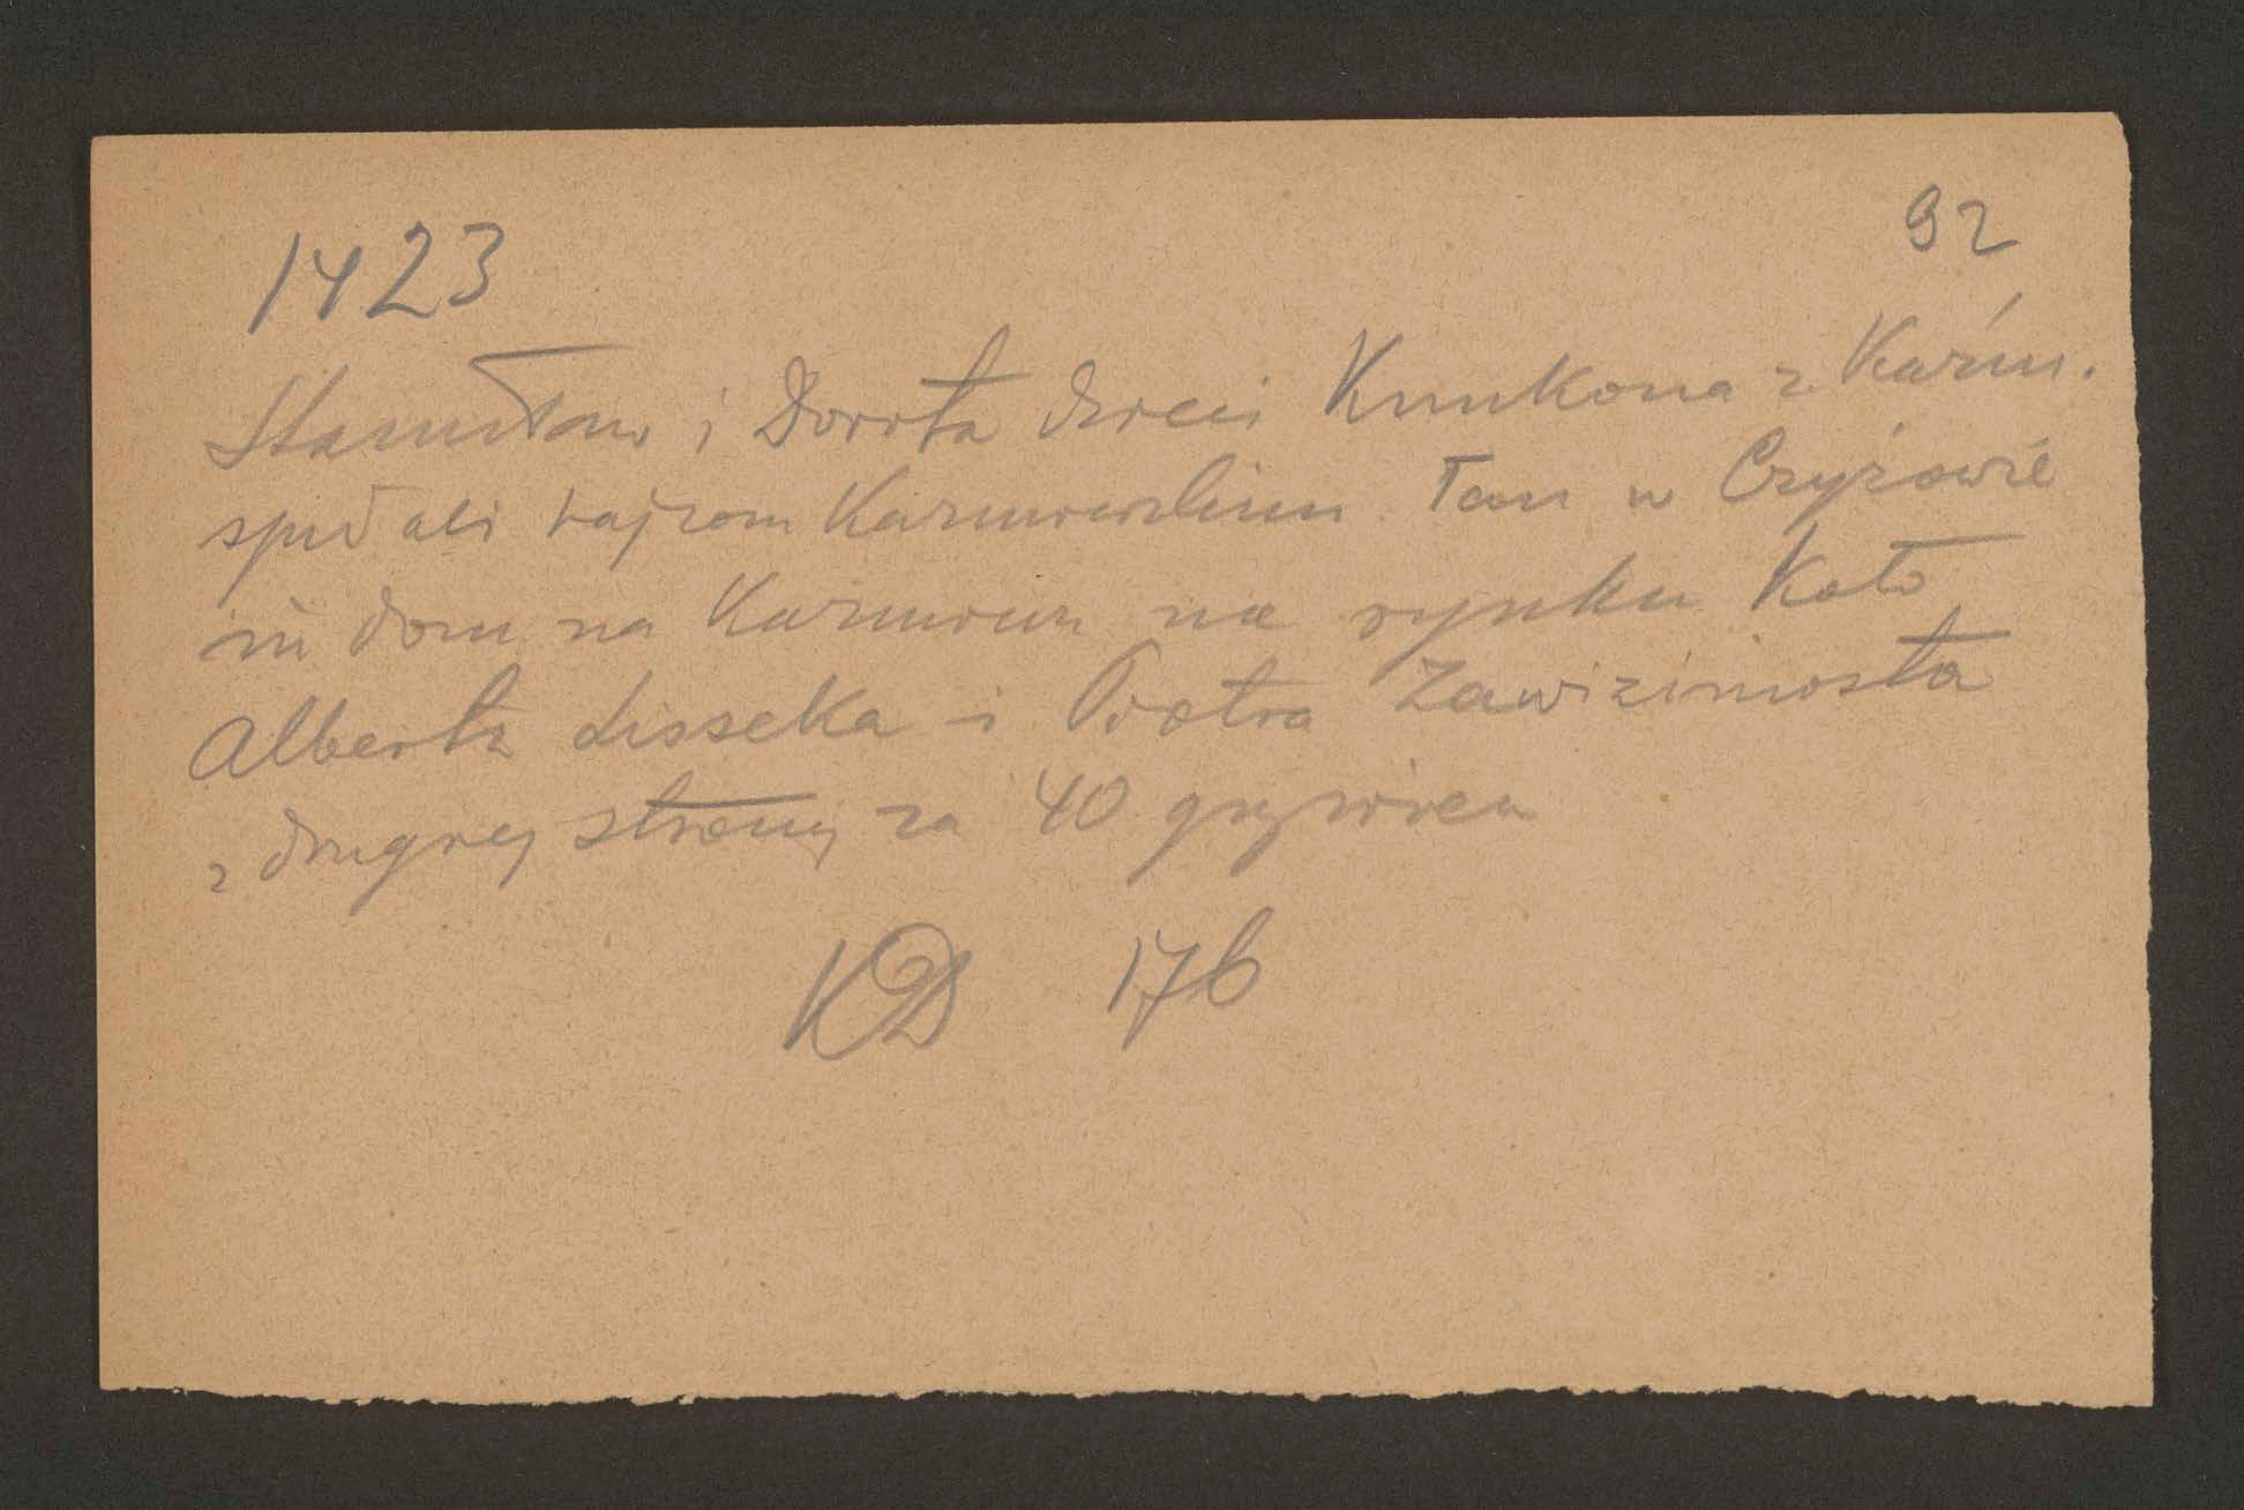 92
1423
Stanisław i Dorota dzieci Kunkona z Kazim.
sprzedali rajcom Kazimierskim łan w Czyżowie
dom na Kazimierzu na rynku koło
Alberta Lisseka i Piotra Zawizimosta
z drugiej strony za 40 grzywien
KD 176